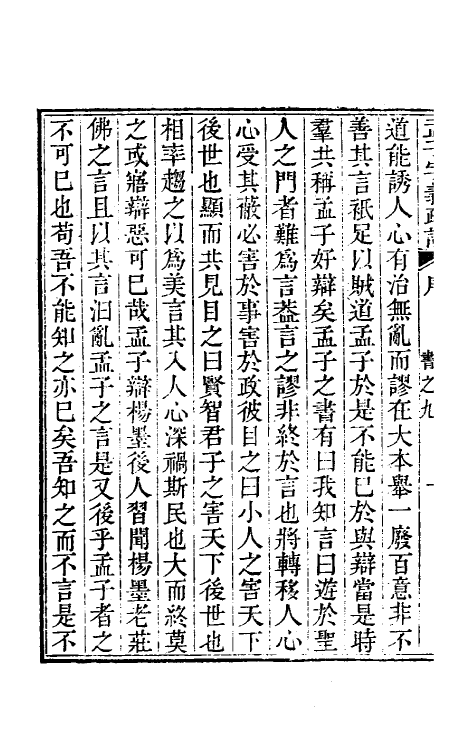 道能誘人心有治無亂而謬在大本舉一廢百意非不
善其言祇足以賊道孟子於是不能已於與辯當是時
羣共稱孟子好辯矣孟子之書有曰我知言曰遊於聖
人之門者難為言葢言之謬非終於言也將轉移人心
心受其蔽必害於事害於政彼目之曰小人之害天下
後世也顯而共見目之曰賢智君子之害天下後世也
相率趨之以為美言其入人心深禍斯民也大而終莫
之或寤辯惡可已哉孟子辯楊墨後人習聞楊墨老莊
佛之言且以其言汩亂孟子之言是又後乎孟子者之
不可已也苟吾不能知之亦已矣吾知之而不言是不